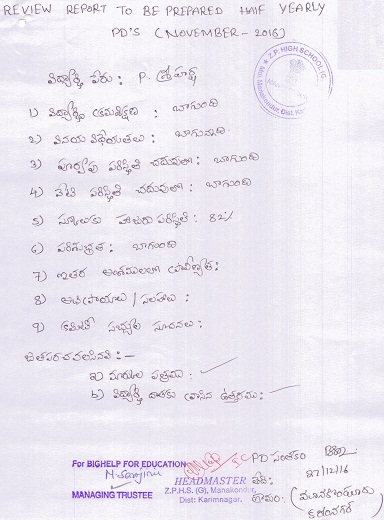 REVIEW REPORT TO BE PREPARED HALF YEARLY
PD'S (NOVEMBER - 2016)
Z.P. HIGH SCHOOL (G)
విద్యార్థి పేరు : P.
1) విద్యార్థి క్రమశిక్షణ : బాగుంది
2) వినయ విధేయతలు : బాగున్నది
3) పూర్వపు పరిస్థితి చదువులో : బాగుంది
4) నేటి పరిస్థితి చదువులో : బాగుంది
5) స్కూలుకు హాజరు పరిస్థితి : 82%
6) పరిశుభ్రత : బాగుంది
7) ఇతర అంశములలో ప్రావీణ్యత :
8) అభిప్రాయాలు / సలహాలు :
9) కమిటి సభ్యుల సూచనలు :
జతపరచవలసినవి :-
a) మార్కుల పత్రము :
b) విద్యార్థి దాతకు వ్రాసిన ఉత్తరము :
For BIGHELP FOR EDUCATION
MANAGING TRUSTEE
HEADMASTER
Z.P.H.S. (G), Manakondur,
Dist: Karimnagar.
PD సంతకం
తేది : 27/12/16
గ్రామం :